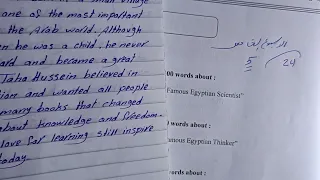 one of the most important
the Arab world. Although
en he was a child, he never
ard and became a great
Taha Hussein believed in
ion and wanted all people
many books that changed
about knowledge and freedom.
love for learning still inspire
today.
5 24
00 words about :
Famous Egyptian Scientist"
0 words about :
amous Egyptian Thinker"
words about :